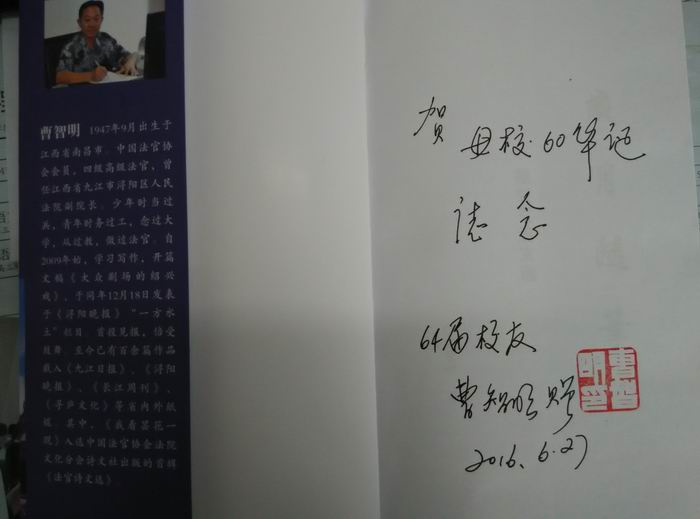 曹智明 1947年9月出生于
江西省南昌市。中国法官协
会会员，四级高级法官，曾
任江西省九江市浔阳区人民
法院副院长。少年时当过
兵，青年时务过工，念过大
学，从过教，做过法官。自
2009年始，学习写作，开篇
文稿《大众剧场的绍兴
戏》，于同年12月18日发表
于《浔阳晚报》“一方水
土”栏目。首投见报，倍受
鼓舞。至今已有百余篇作品
载入《九江日报》、《浔阳
晚报》、《长江周刊》、
《寻庐文化》等省内外纸
媒。其中，《我看昙花一
现》入选中国法官协会法院
文化分会诗文社出版的首辑
《法官诗文选》。
贺
母校60华诞
誌念
64届校友
曹智明 赠
2016.6.27
曹智明